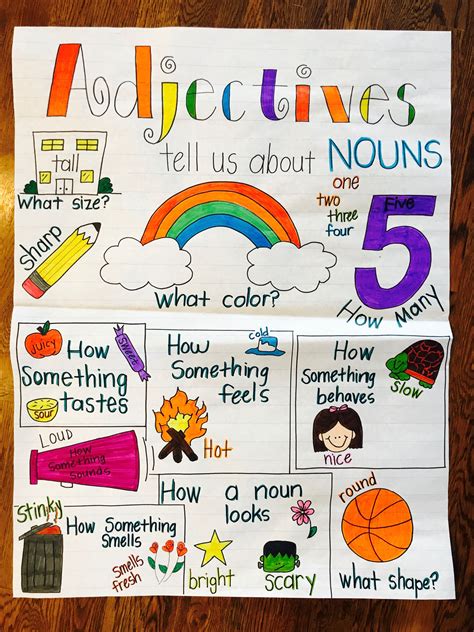 Adjectives
tell us about NOUNS
tall
What size?
sharp
What color?
one
two
three
four
Five
5
How Many
juicy
sweet
sour
How
Something
tastes
How
Something
feels
cold
Hot
How
Something
behaves
slow
nice
LOUD
How
Something
Sounds
Stinky
How Something
Smells
smells
fresh
How a noun
looks
bright
scary
round
what shape?